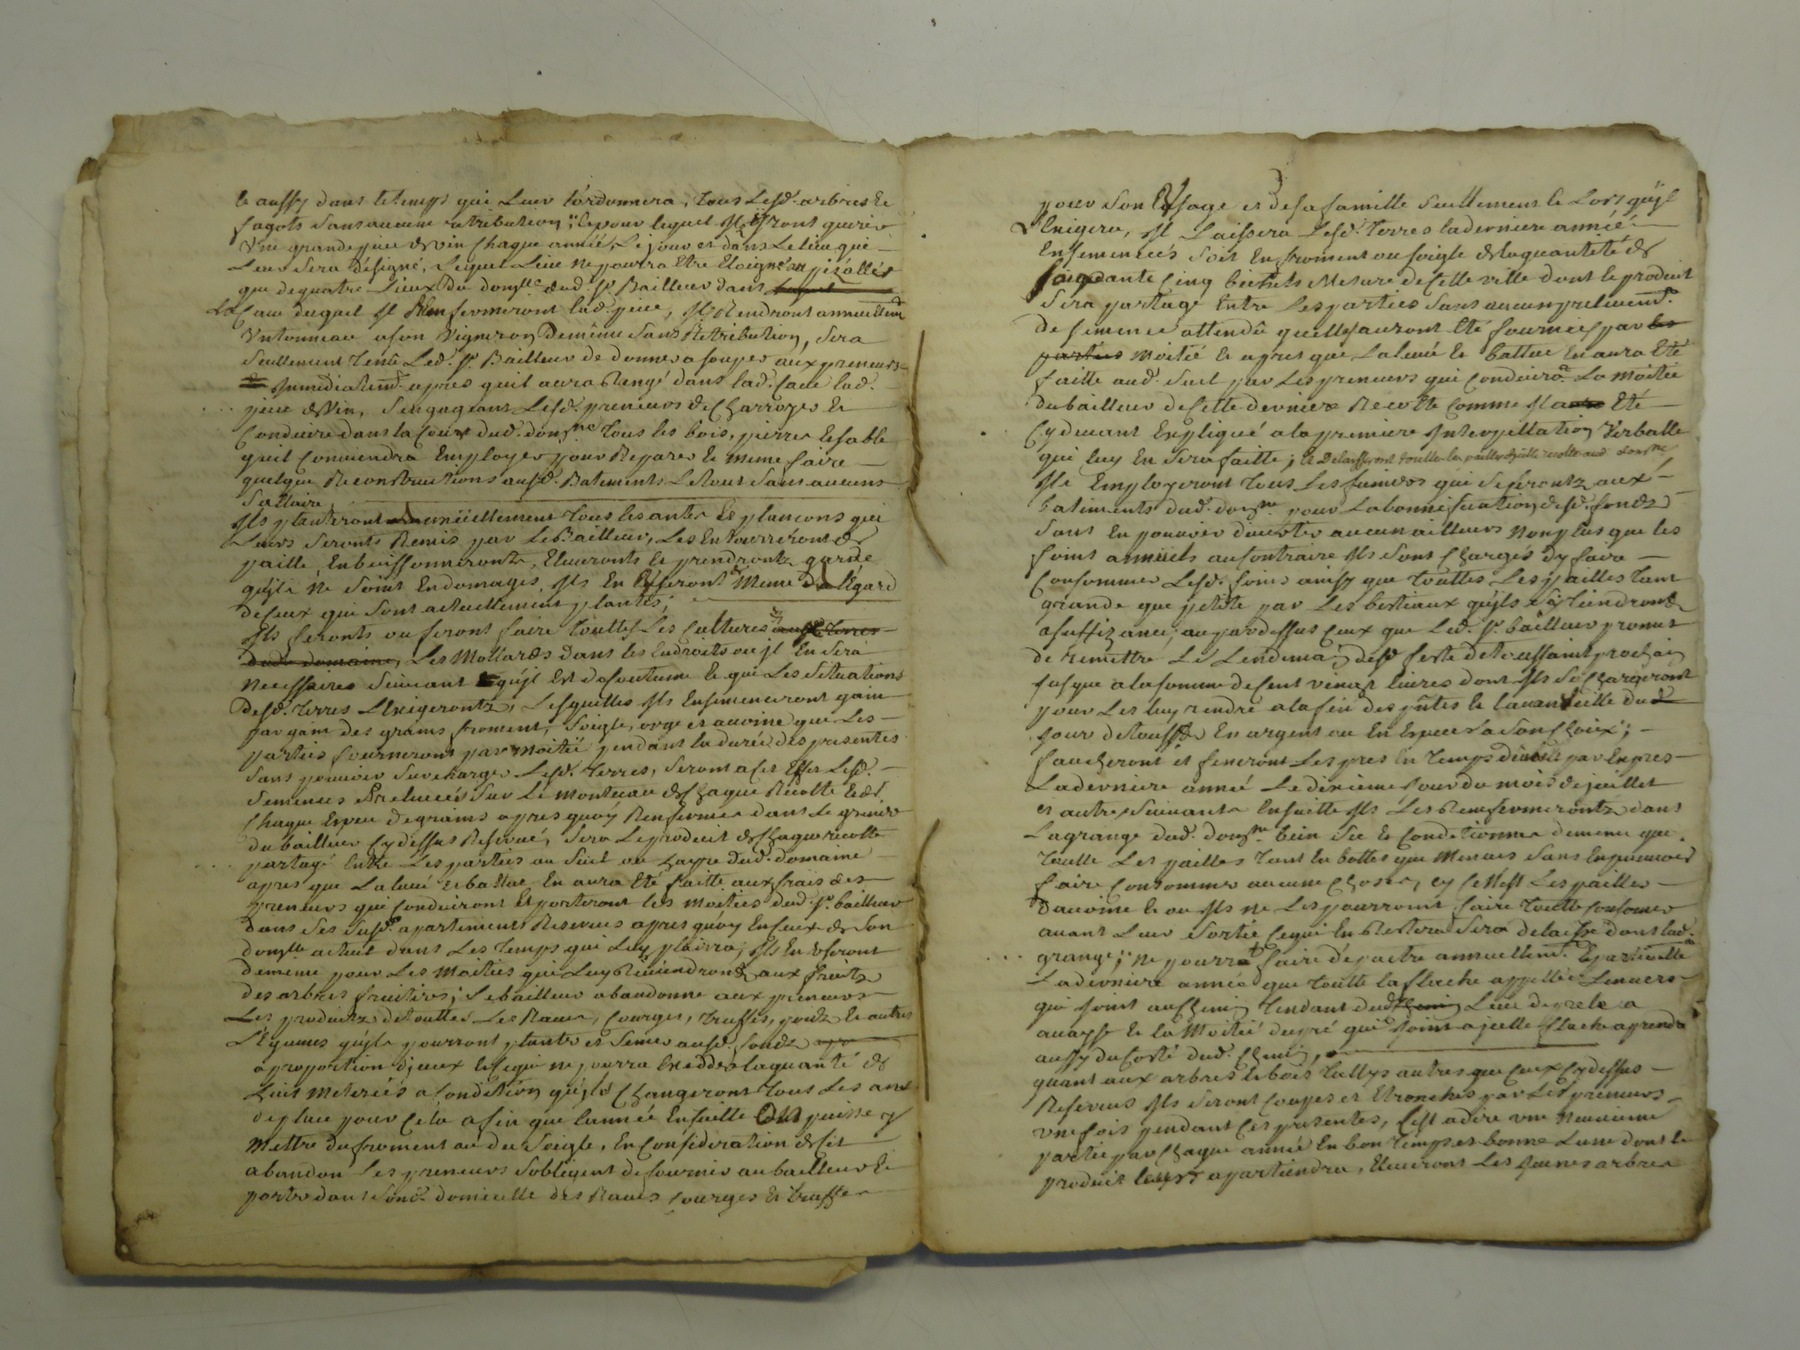 et aussy dans le temps qui leur l'ordonnera, tous lesd. arbres et
fagots sans aucune retribution, et pour lequel ils iront querir
une grande piece de vin chaque année, le jour et dans le lieu que
leur sera désigné, lequel lieu ne pourra etre eloigné au pis aller
que de quatre lieux du domlle dud. sr. Bailleur dans
la cave duquel il renfermeront lad. piece, ils rendront annuellemt
un tonneau a son vigneron de même sans retribution, sera
seullement tenu led. sr. Bailleur de donner a souper aux preneurs
immediatemt. apres qu'il aura rangé dans lad. cave lad.
piece de vin, s'engageant lesd. preneurs de charroyer et
conduire dans la cour dud. domne tous les bois, pierre et sable
quil conviendra employer pour reparer et meme faire
quelque reconstructions ausd. batiments le tout sans aucuns
sallaire
Ils planteront annüellement tous les antes et plançons qui
leurs seronts remis par le Bailleur, les entourreront de
paille, enbuissonneronts, eleveronts et prendronts garde
qu'ils ne soint endomagés, ils en useront de meme a l'égard
de ceux qui sont actuellement plantés;
Ils feronts ou feront faire touttes les cultures
les mollards dans les endroits ou jl en sera
necessaires suivant qu'jl est de coutume et que les situations
desd. terres l'exigeronts, lesquelles ils ensemenceront gain
par gain des grains froment, soigle, orge et avoine que les
parties fourneront par moitié pendant la durée des presentes
sans pouvoir surcharger lesd. terres, seront a cet effet lesd.
semences prelevées sur le monceau de chaque recolte et de
chaque espece de grains apres quoy renfermée dans le grenier
du bailleur cydessus reservé, sera le produit de chaque recolte
partagé entre les parties au suel ou dud. domaine
apres que la levé et battue en aura eté faitte aux frais des
preneurs qui conduiront et porteront les moitiés dud. sr. bailleur
dans ses susd. apartements reservés apres quoy en ceux de son
domlle actuel dans les temps qui luy plaira; ils en useront
de meme pour les moitiés qui luy reviendront aux fruits
des arbres fruitiers; le bailleur abandonne aux preneurs
les produits de touttes les raves, courges, truffes, pois et autres
légumes qu'ils pourront planter et semer ausd. fonds
a proportion d'jceux et ce qui ne pourra exeder la quantité de
huit meterées a condition qu'ils changeront tous les ans
de place pour cela afin que l'année ensuitte on puisse y
mettre du froment ou du soigle, en consideration de cet
abandon les preneurs s'obligent de fournir au bailleur et
porter dans sond. domicille des raves courges et truffes
pour son usage et de sa famille seullement et lors qu'jl
l'exigera, il laissera lesd. terres la derniere année
ensemencées soit en froment ou soigle de la quantité de
soixante cinq bichets mesure de cette ville dont le produit
sera partagé entre les parties sans aucun prelevemt.
de semence attendu quelles auront eté fournies par
moitié et apres que la levée et battue en aura eté
faitte aud. suel par les preneurs qui conduiront la moitié
du bailleur de cette derniere recolte comme il a eté
cy devant expliqué a la premiere interpellation verballe
qui luy en sera faitte; et delaisseront toutte la paille de cette recolte aud. domne
Ils employeront tous les fumiers qui se feronts aux
batiments dud. domne. pour la bonnification desd. fonds
sans en pouvoir divertir aucun ailleurs non plus que les
foins annuels au contraire ils sont chargés d'y faire
consommer lesd. foins ainsy que touttes les pailles tant
grande que petite par les bestiaux qu'ils y tiendronts
a suffizance, au par dessus ceux que led. sr. bailleur promet
de remettre le lendemain desd. feste de toussaint prochain
jusque a la somme de cent vingt livres dont ils se chargeront
pour les luy rendre a la fin des pntes et la avant veille dud
jour de toussts en argent ou en espece a son choix;
faucheront et feneront les prés en temps dû et par expres
la derniere année le dixieme jour du mois de juillet
et autres suivants ensuitte ils les renfermeronts dans
la grange dud. domne. bien sec et conditionné de meme que
toutte les pailles tant en bottes que menues sans en pouvoir
faire consommer aucune chose, cy ce n'est les pailles
d'avoine et ou ils ne les pourront faire toutte consomer
avant leur sortie ce qui en restera sera delaissé dans lad.
grange; ne pourra faire dépaitre annuellemt. et particulierem
la derniere année que toutte la fleche appellée l'envers
qui joint au chemin tendant dud. lieu de a
a et la moitié du pré qui joint a jcelle fleche a prendre
aussy du costé dud. chemin,
quant aux arbres et bois tallys autres que ceux cydessus
reservés ils seront coupés et etronchés par les preneurs
une fois pendant ces presentes, c'est a dire une neuvieme
partie par chaque année en bon temps et bonne lune dont le
produit leur apartiendra, eleveront les jeunes arbres